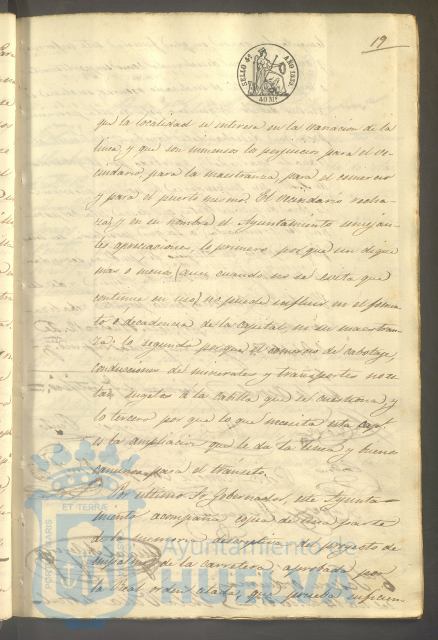 19
SELLO 4º AÑO 1858
40 Ms
que la localidad se interesa en la variacion de la
linea y que son inmensos los perjuicios para el ve-
cindario, para la maestranza, para el comercio
y para el puerto mismo. El vecindario recha-
za, y en su nombre el Ayuntamiento semejan-
tes apreciaciones, lo primero por que un dique
mas o menos (aun cuando no se evita que
continue en uso) no puede influir en el fomen-
to o decadencia de la capital, ni su maestran-
za: lo segundo por que el comercio de cabotaje,
conducciones de minerales y transportes no es-
tan sugetos a la Calzada que se cuestiona, y
lo tercero por que lo que necesita esta capl.
es la ampliacion que le da la linea y buenos
caminos para el transito.
Por ultimo Sr Gobernador, este Ayunta-
miento acompaña copia de una parte
de la memoria descriptiva del proyecto de
empalme de la carretera aprobada por
la Real orden citada, que prueba suficien-
PORTUS MARIS ET TERRAE
Ayuntamiento de
HUELVA